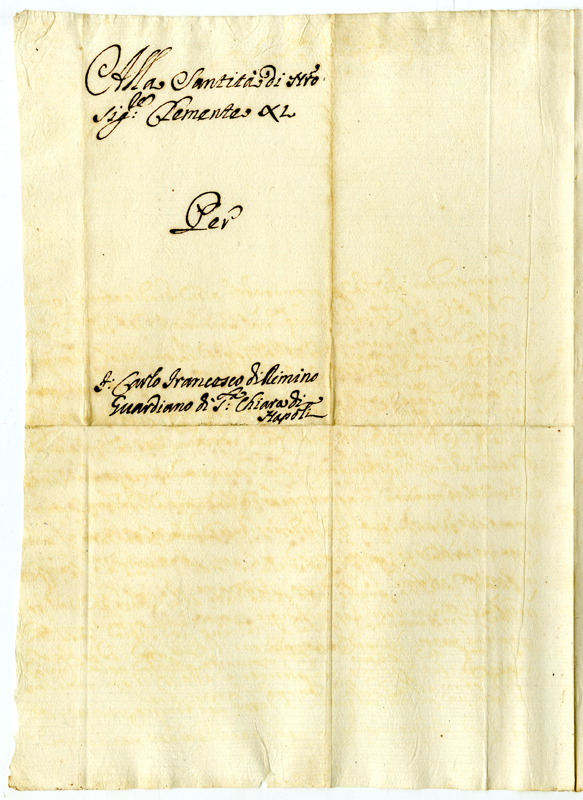 Alla Santità di Nro
Sig:re Clemente XI
Per
F: Carlo Francesco di Rimino
Guardiano di S:ta Chiara di
Napoli